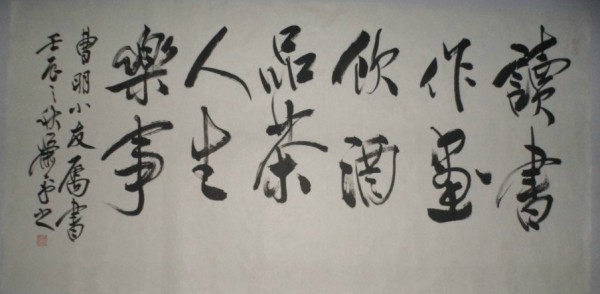 讀書
作畫
飲酒
品茶
人生
樂事
曹明小友屬書
壬辰之秋